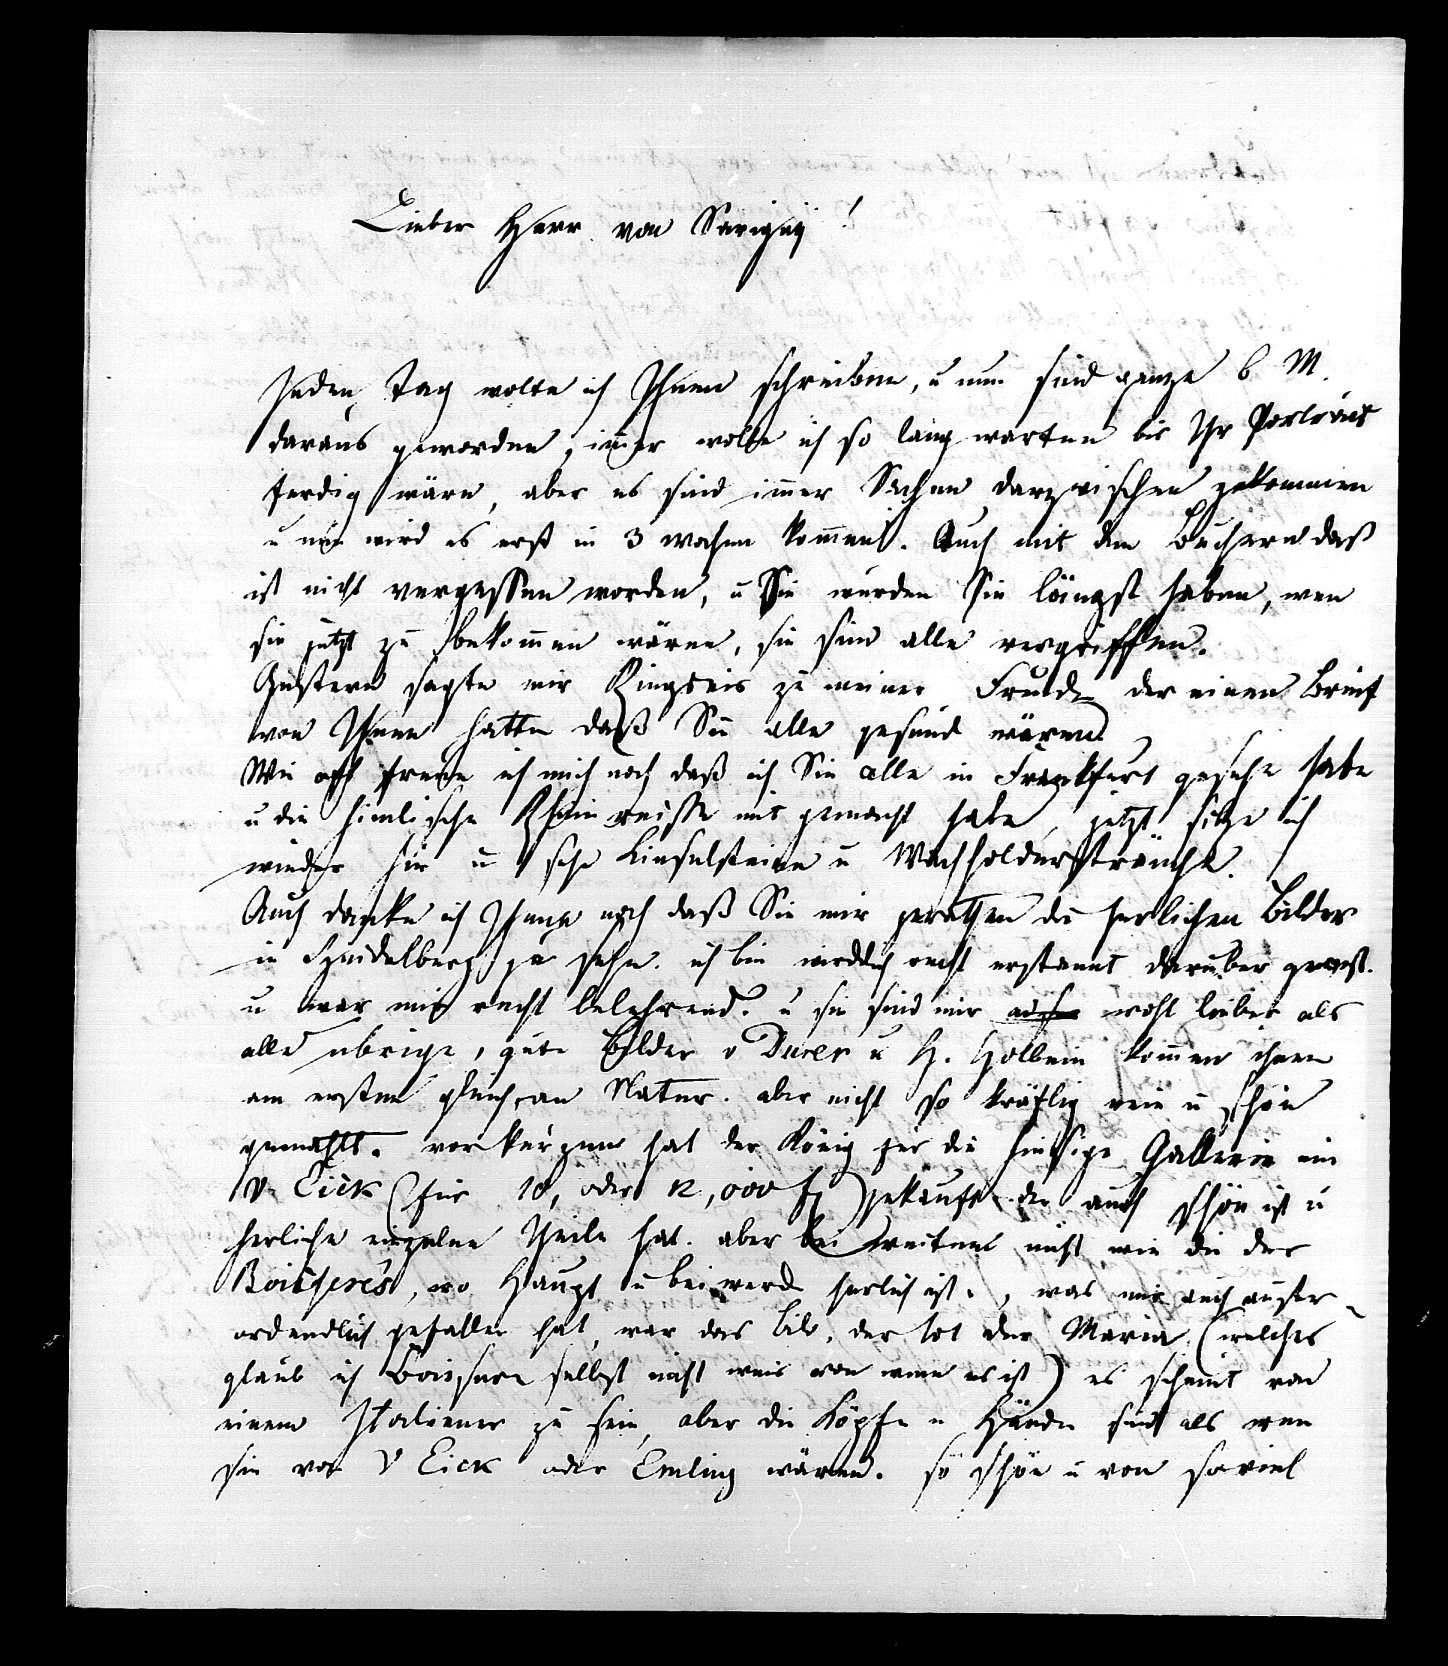 Lieber Herr von Savigny!
Jeden Tag wolte ich Ihnen schreiben, u nun sind ganze 6 M.
daraus geworden, imer wolte ich so lang warten bis Ihr Porträit
ferdig wäre, aber es sind imer Sachen darzwischen gekommen
u nun wird es erst in 3 wochen komen. Auch mit den Büchern daß
ist nicht vergessen worden, u Sie würden Sie längst haben, wen
sie jetzt zu bekomen wären, sie sind alle vergriffen.
Gestern sagte mir Ringseis zu meiner Freude der einen Brief
von Ihnen hatte daß Sie alle gesund wären
Wie oft freue ich mich noch daß ich Sie alle in Frankfurt gesehe habe
u die himlische Rhein reisse mit gemacht habe, jetzt sitze ich
wieder hir u sehe Kieselsteine u Wachholdersträuche.
Auch danke ich Ihnen noch daß Sie mir gerathen die herlichen Bilder
in Heidelberg zu sehn. ich bin wircklich recht erstaunt darüber gewest.
u war mir recht belehrend. u sie sind mir wohl lieber als
alle übrige, gute Bilder v Dürer u H. Holbein komen ihnen
am ersten gleich, an Natur. aber nicht so kräftig rein u schön
gemahlt. vor kurzen hat der König für die hiesige Gallerie ein
V. Eick (für 10, oder 12,000 f) gekauft der auch schön ist u
herliche einzelne Theile hat. aber bei weiten nicht wie die der
Boisseres, wo Haupt u beiwerck herlich ist., was mir auch ausser-
ordendlich gefallen hat, war das bild, der tot der Maria (welches
glaub ich Boissere selbst nicht weis von wem es ist) es scheint von
einem Italiener zu sein, aber die Köpfe u Hände sind als wen
sie von V Eick oder Emling wären. so schön u von soviel